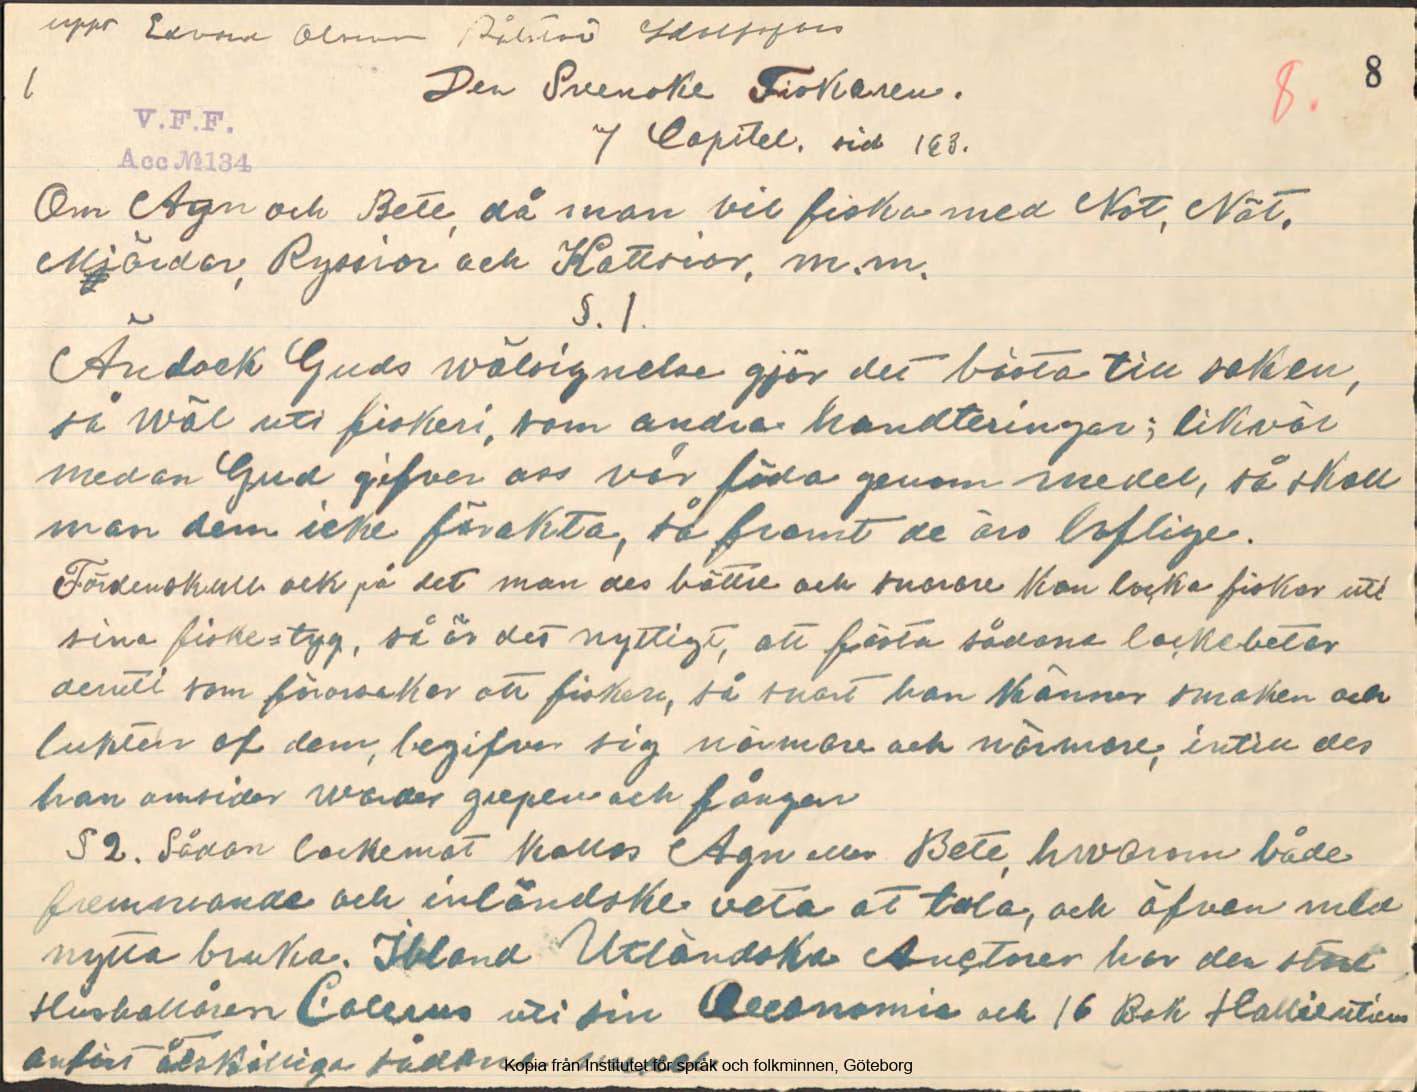 uppt Edvard Olsson Bålstad Adolfsfors
1
8.
8
Den Svenske Fiskaren.
7 Capitel. sid 183.
V.F.F.
Acc №134
Om Agn och Bete, då man vil fiska med Not, Nät,
Mjärdar, Ryssior och Kattsior, m.m.
§. 1.
Ändock Guds wälsignelse gjör det bästa till saken,
så wäl uti fiskeri, som andra handteringar; likväl
medan Gud gifver oss vår föda genom medel, så skall
man dem icke förakta, så framt de äro loflige.
Fördenskull ock på det man des bättre och snarare kan locka fiskar uti
sina fiske=tyg, så är det nyttigt, att fästa sådana lockebetar
deruti som förorsakar att fisken, så snart han känner smaken och
lukten af dem, begifver sig närmare och närmare, intill des
han omsider warder grepen och fången
§ 2. Sådan lockemat kallas Agn eller Bete, hwarom både
fremmande och inländske veta at tala, och äfven med
nytta bruka. Ibland Utländska Auctorer har den store
Hushållåren Colerus uti sin Oeconomia och 16 Bok
anfört åtskilliga sådana
Kopia från Institutet för språk och folkminnen, Göteborg